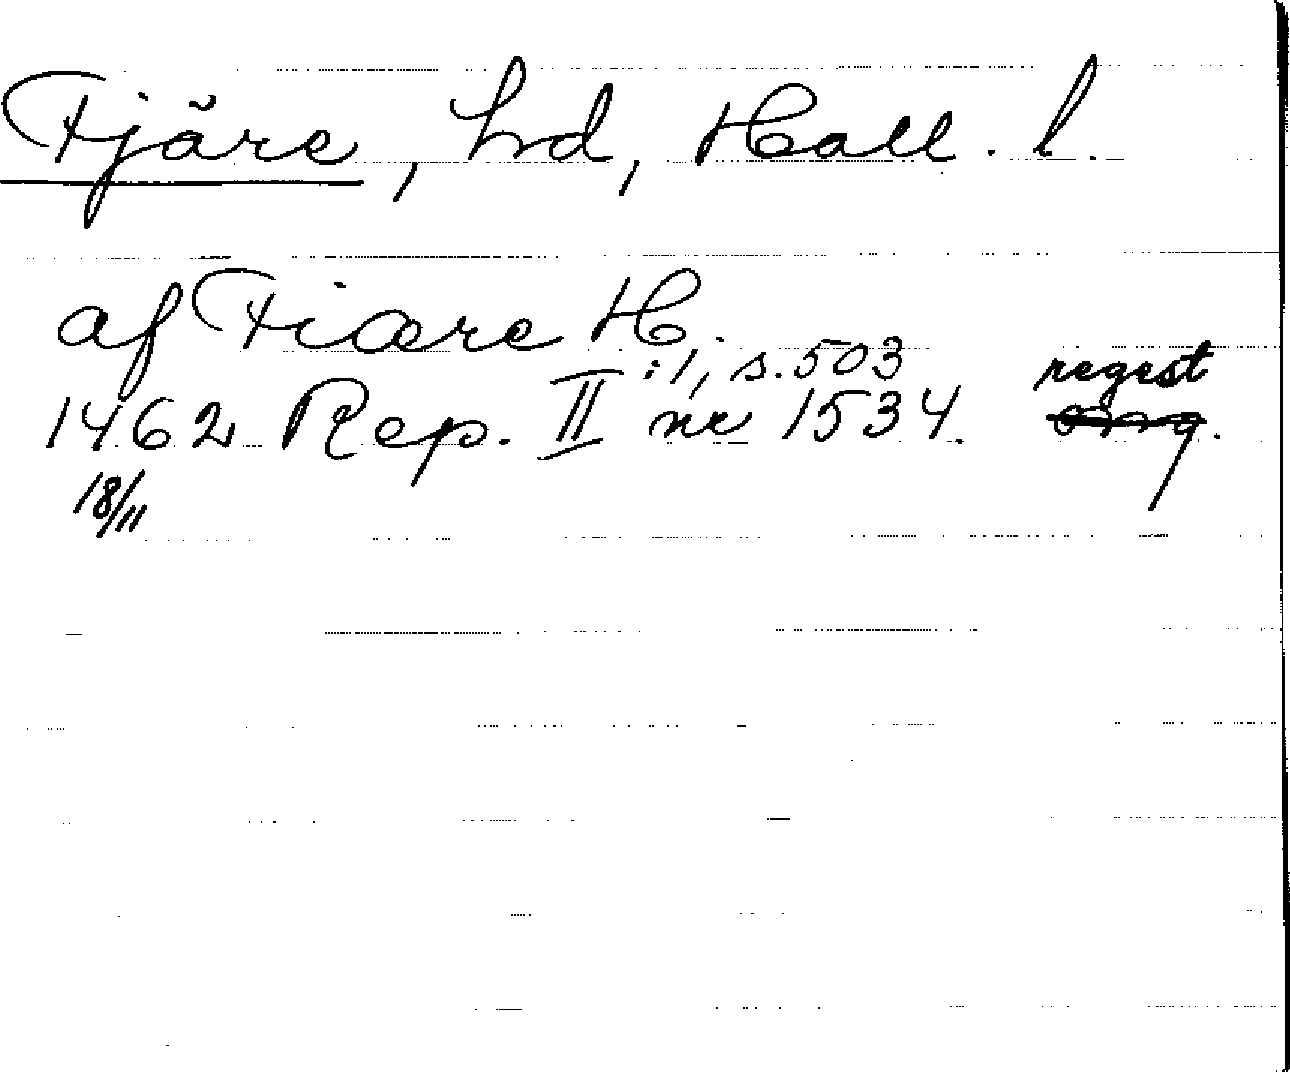 Fjäre, hd, Hall. l.
af Fiære H.
1462 Rep. II :1, s. 503 nr 1534. regest
18/11